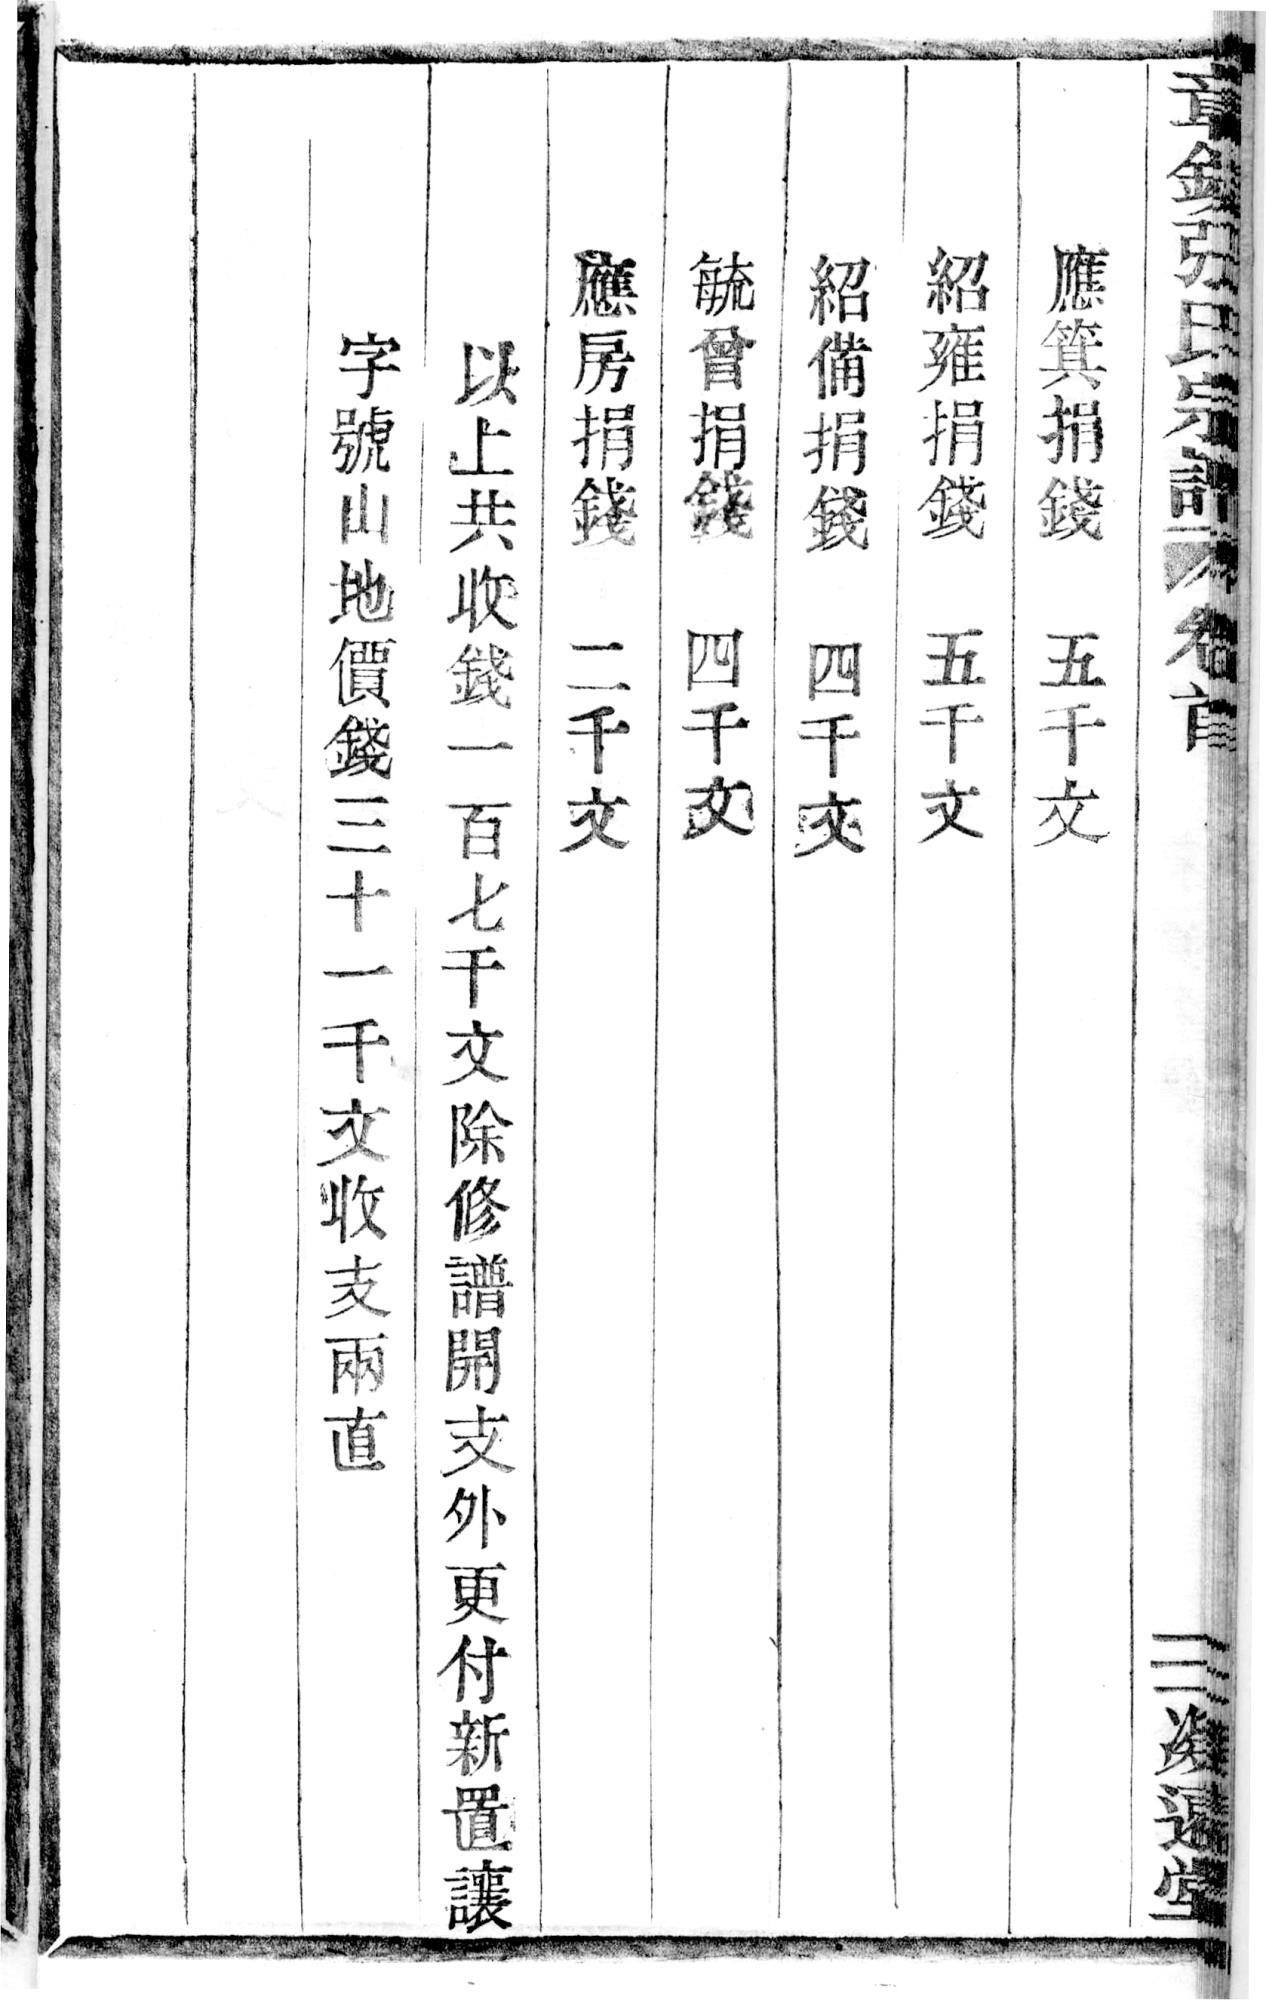 張氏宗譜 卷首 三 堂
應箕捐錢 五千文
紹雍捐錢 五千文
紹備捐錢 四千文
毓曾捐錢 四千文
應房捐錢 二千文
以上共收錢一百七千文除修譜開支外更付新置讓
字號山地價錢三十一千文收支兩直